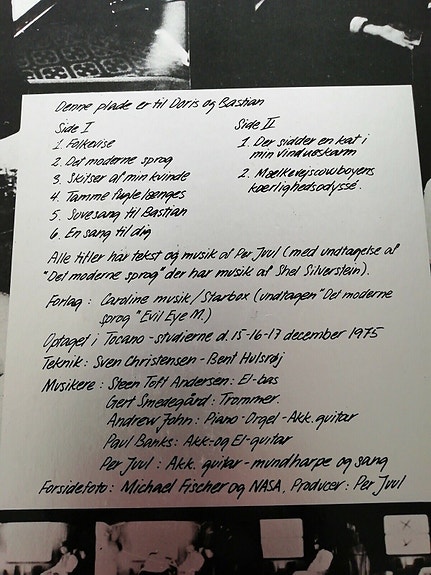 Denne plade er til Doris og Bastian
Side I
1. Folkevise
2. Det moderne sprog
3. Skitser af min kvinde
4. Tamme fugle længes
5. Sovesang til Bastian
6. En sang til dig
Side II
1. Der sidder en kat i
min vindueskarm
2. Mælkevejscowboyens
kærlighedsodyssé.
Alle titler har tekst og musik af Per Juul (med undtagelse af
"Det moderne sprog" der har musik af Shel Silverstein).
Forlag: Caroline musik/Starbox (undtagen "Det moderne
sprog" Evil Eye M.)
Optaget i Tocano-studierne d. 15-16-17 december 1975
Teknik: Sven Christensen - Bent Hulsrøj
Musikere: Steen Toft Andersen: El-bas
Gert Smedegård: Trommer.
Andrew John: Piano-Orgel-Akk. guitar
Paul Banks: Akk-og El-guitar
Per Juul: Akk. guitar-mundharpe og sang
Forsidefoto: Michael Fischer og NASA, Producer: Per Juul